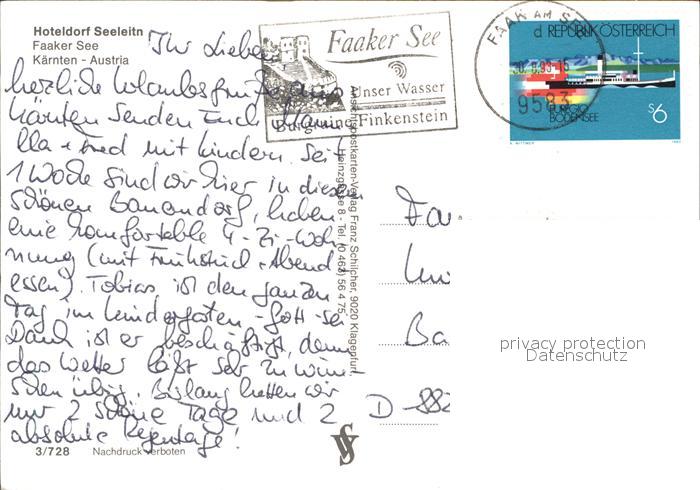 Hoteldorf Seeleitn
Faaker See
Kärnten - Austria
Ihr Lieben
herzliche Urlaubsgrüße aus
Kärnten senden Euch Manu
Ella + Fred mit Kindern. Seit
1 Woche sind wir hier in diesem
schönen Bauerndorf, haben
eine komfortable 4-Zi-Woh-
nung (mit Frühstück + Abend
essen). Tobias ist den ganzen
Tag im Kindergarten - Gott sei
Dank ist er beschäftigt, denn
das Wetter läßt sehr zu wün-
schen übrig. Bislang hatten wir
nur 2 schöne Tage und 2
absolute Regentage!
3/728 Nachdruck verboten
Faaker See
Unser Wasser
Burgruine Finkenstein
Ansichtspostkarten-Verlag Franz Schilcher, 9020 Klagenfurt
Heinzgasse 8 - Tel. (0 463) 56 4 75
FAAK AM SEE
d
93-15
9583
REPUBLIK ÖSTERREICH
EUREGIO
BODENSEE
S6
1993
D-882
privacy protection
Datenschutz